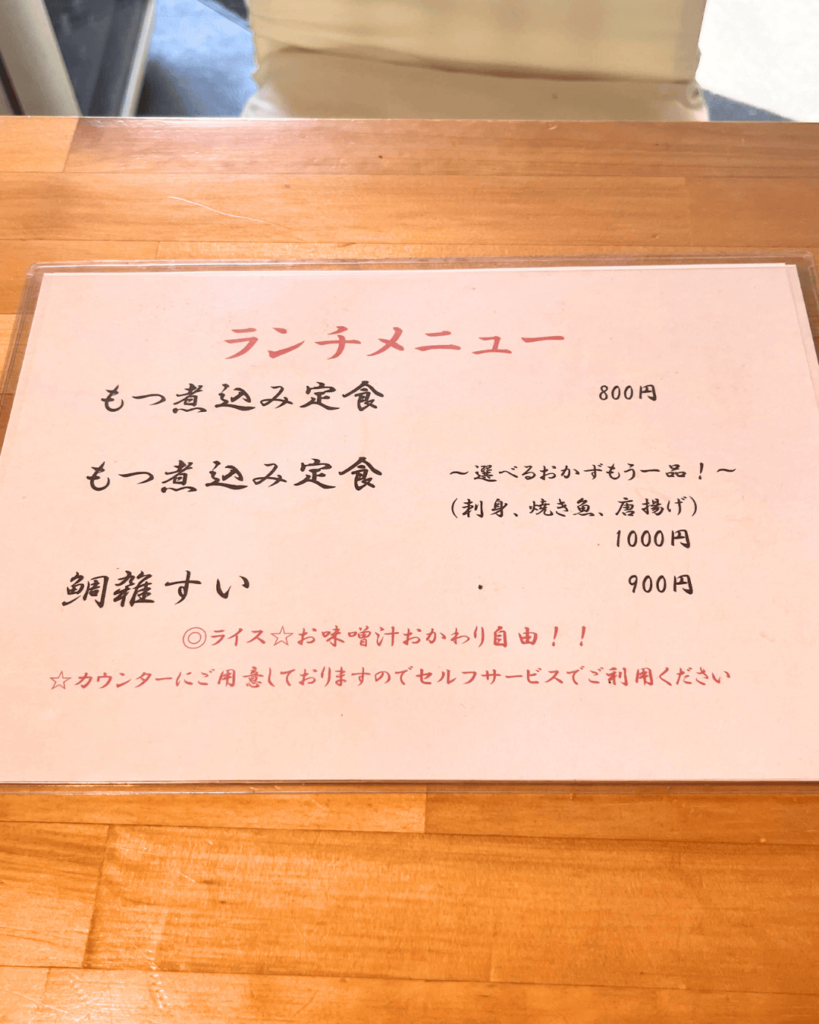 ランチメニュー
もつ煮込み定食 800円
もつ煮込み定食 ~選べるおかずもう一品!~
(刺身、焼き魚、唐揚げ)
1000円
鯛雑すい 900円
◎ライス☆お味噌汁おかわり自由!!
☆カウンターにご用意しておりますのでセルフサービスでご利用ください